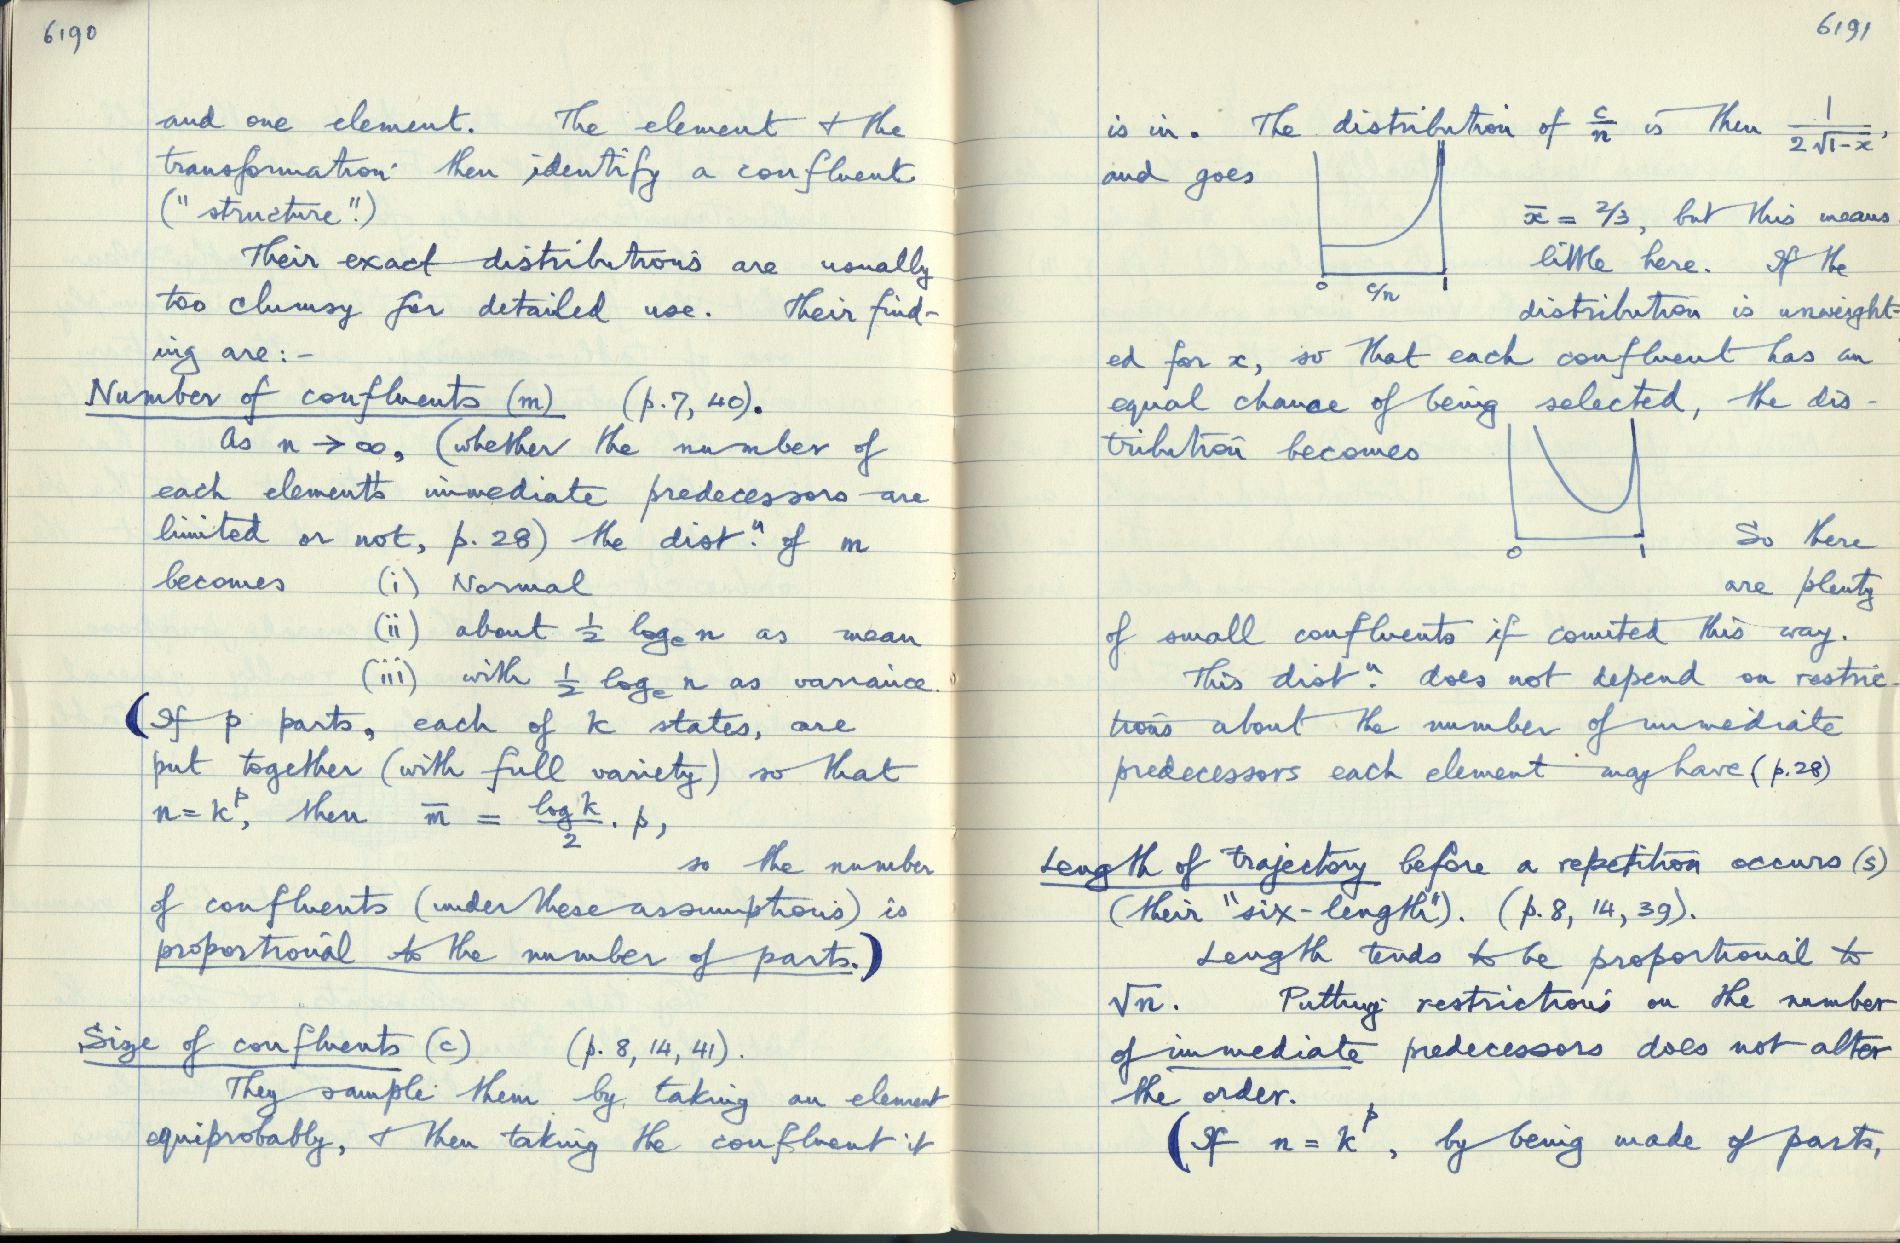 6190
and one element. The element + the
transformation then identify a confluent
("structure".)
Their exact distributions are usually
too clumsy for detailed use. Their find-
ing are:-
Number of confluents (m) (p.7, 40).
As n → ∞, (whether the number of
each element's immediate predecessors are
limited or not, p. 28) the distⁿ. of m
becomes (i) Normal
(ii) about ½ logₑ n as mean
(iii) with ½ logₑ n as variance.
(If p parts, each of k states, are
put together (with full variety) so that
n = kᵖ, then m̄ = log k / 2 . p,
so the number
of confluents (under these assumptions) is
proportional to the number of parts.)
Size of confluents (c) (p. 8, 14, 41).
They sample them by taking an element
equiprobably, + then taking the confluent it
6191
is in. The distribution of c/n is then 1/(2√1-x),
and goes
0 c/n 1
x̄ = 2/3, but this means
little here. If the
distribution is unweight-
ed for x, so that each confluent has an
equal chance of being selected, the dis-
tribution becomes
0 1
So there
are plenty
of small confluents if counted this way.
This distⁿ. does not depend on restric-
tions about the number of immediate
predecessors each element may have (p.28)
Length of trajectory before a repetition occurs (s)
(their "six-length"). (p. 8, 14, 39).
Length tends to be proportional to
√n. Putting restrictions on the number
of immediate predecessors does not alter
the order.
(If n = kᵖ, by being made of parts,